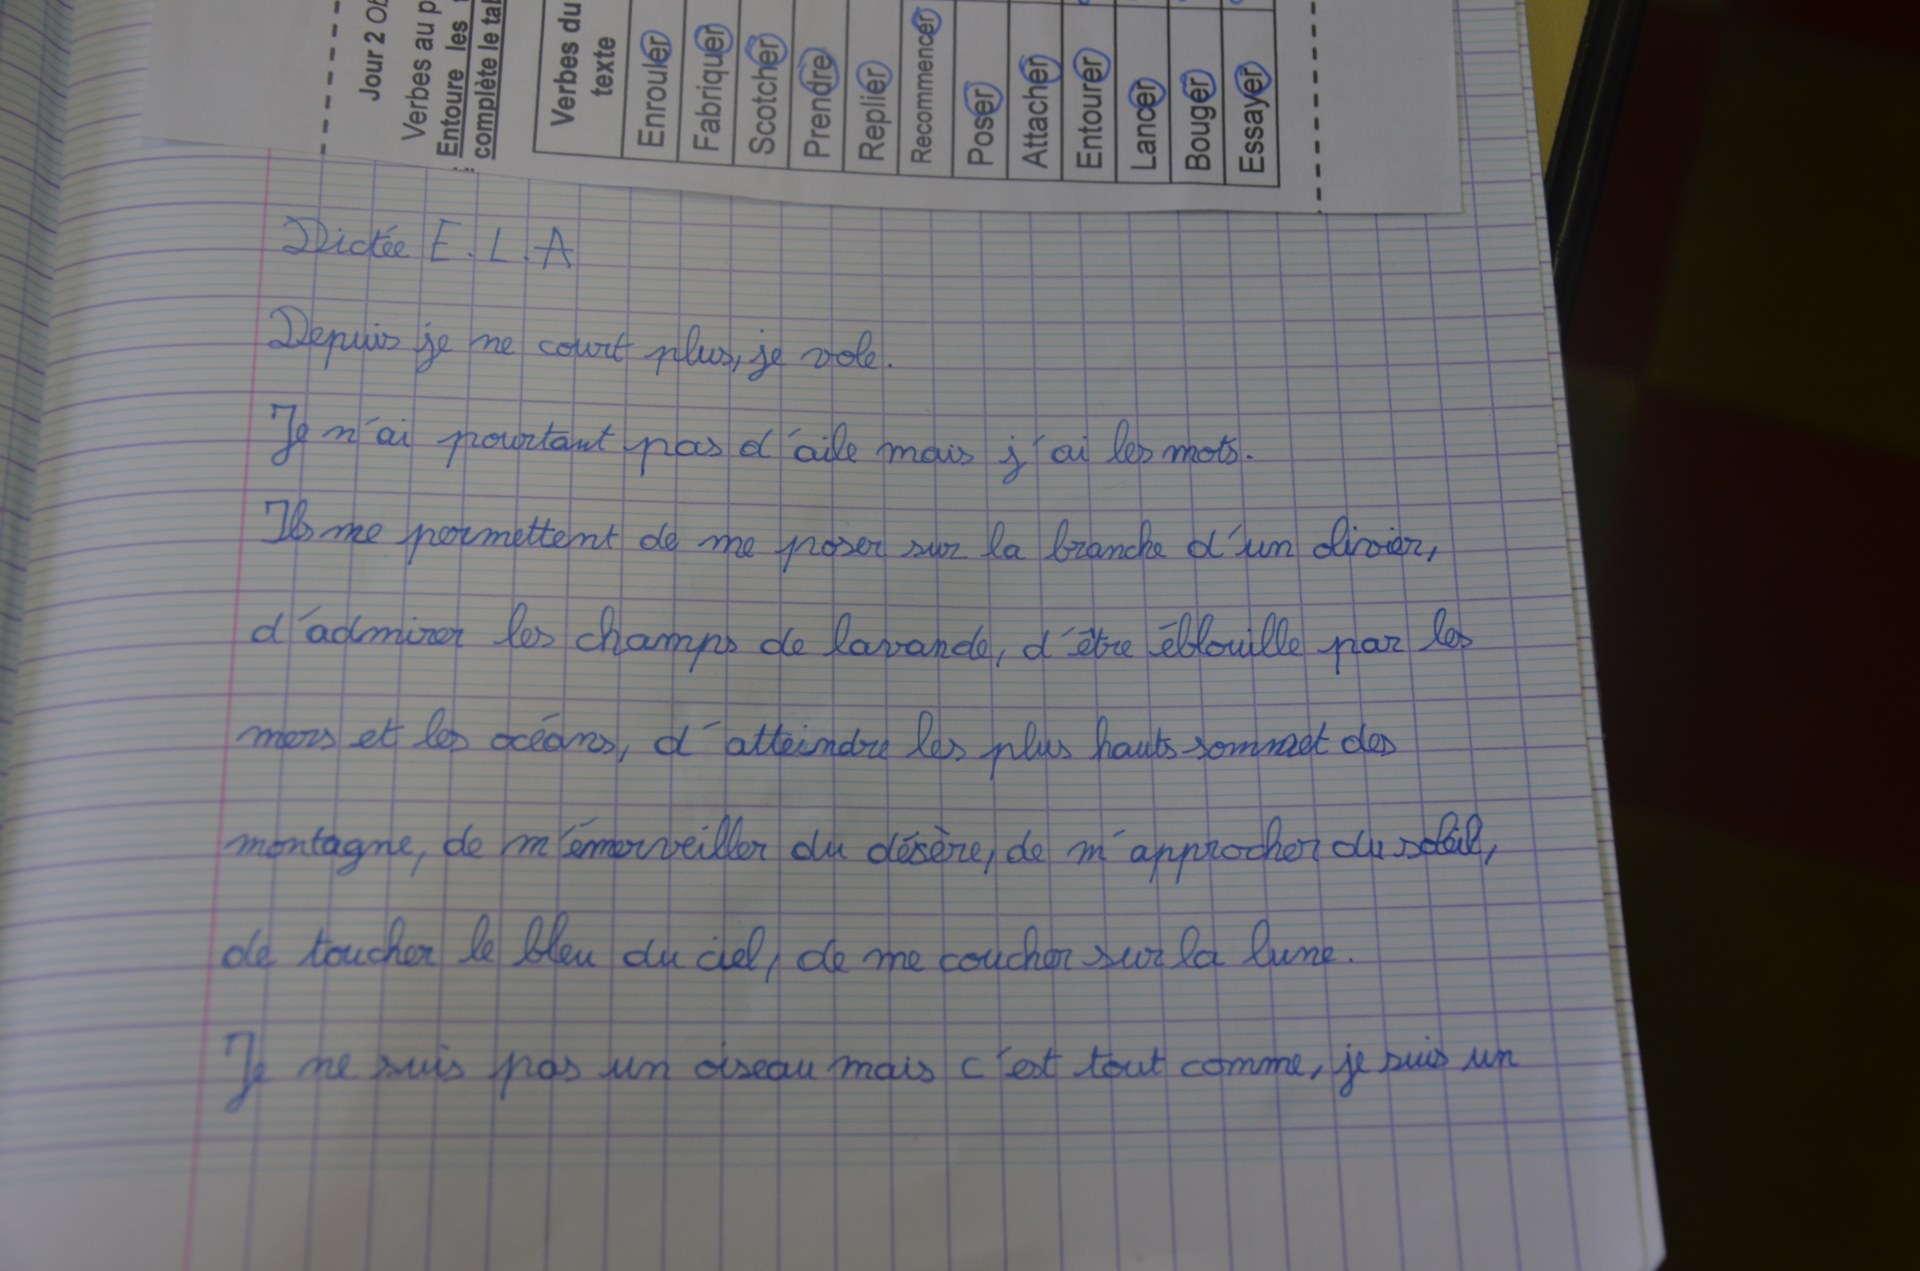 Jour 2
Verbes au
Entoure les
complète le
Verbes du texte
Enrouler
Fabriquer
Scotcher
Prendre
Replier
Recommencer
Poser
Attacher
Entourer
Lancer
Bouger
Essayer
Dictée E.L.A
Depuis je ne court plus, je vole.
Je n'ai pourtant pas d'aile mais j'ai les mots.
Ils me permettent de me poser sur la branche d'un olivier,
d'admirer les champs de lavande, d'être éblouille par les
mers et les océans, d'atteindre les plus hauts sommet des
montagne, de m'émerveiller du désère, de m'approcher du soleil,
de toucher le bleu du ciel, de me coucher sur la lune.
Je ne suis pas un oiseau mais c'est tout comme, je suis un